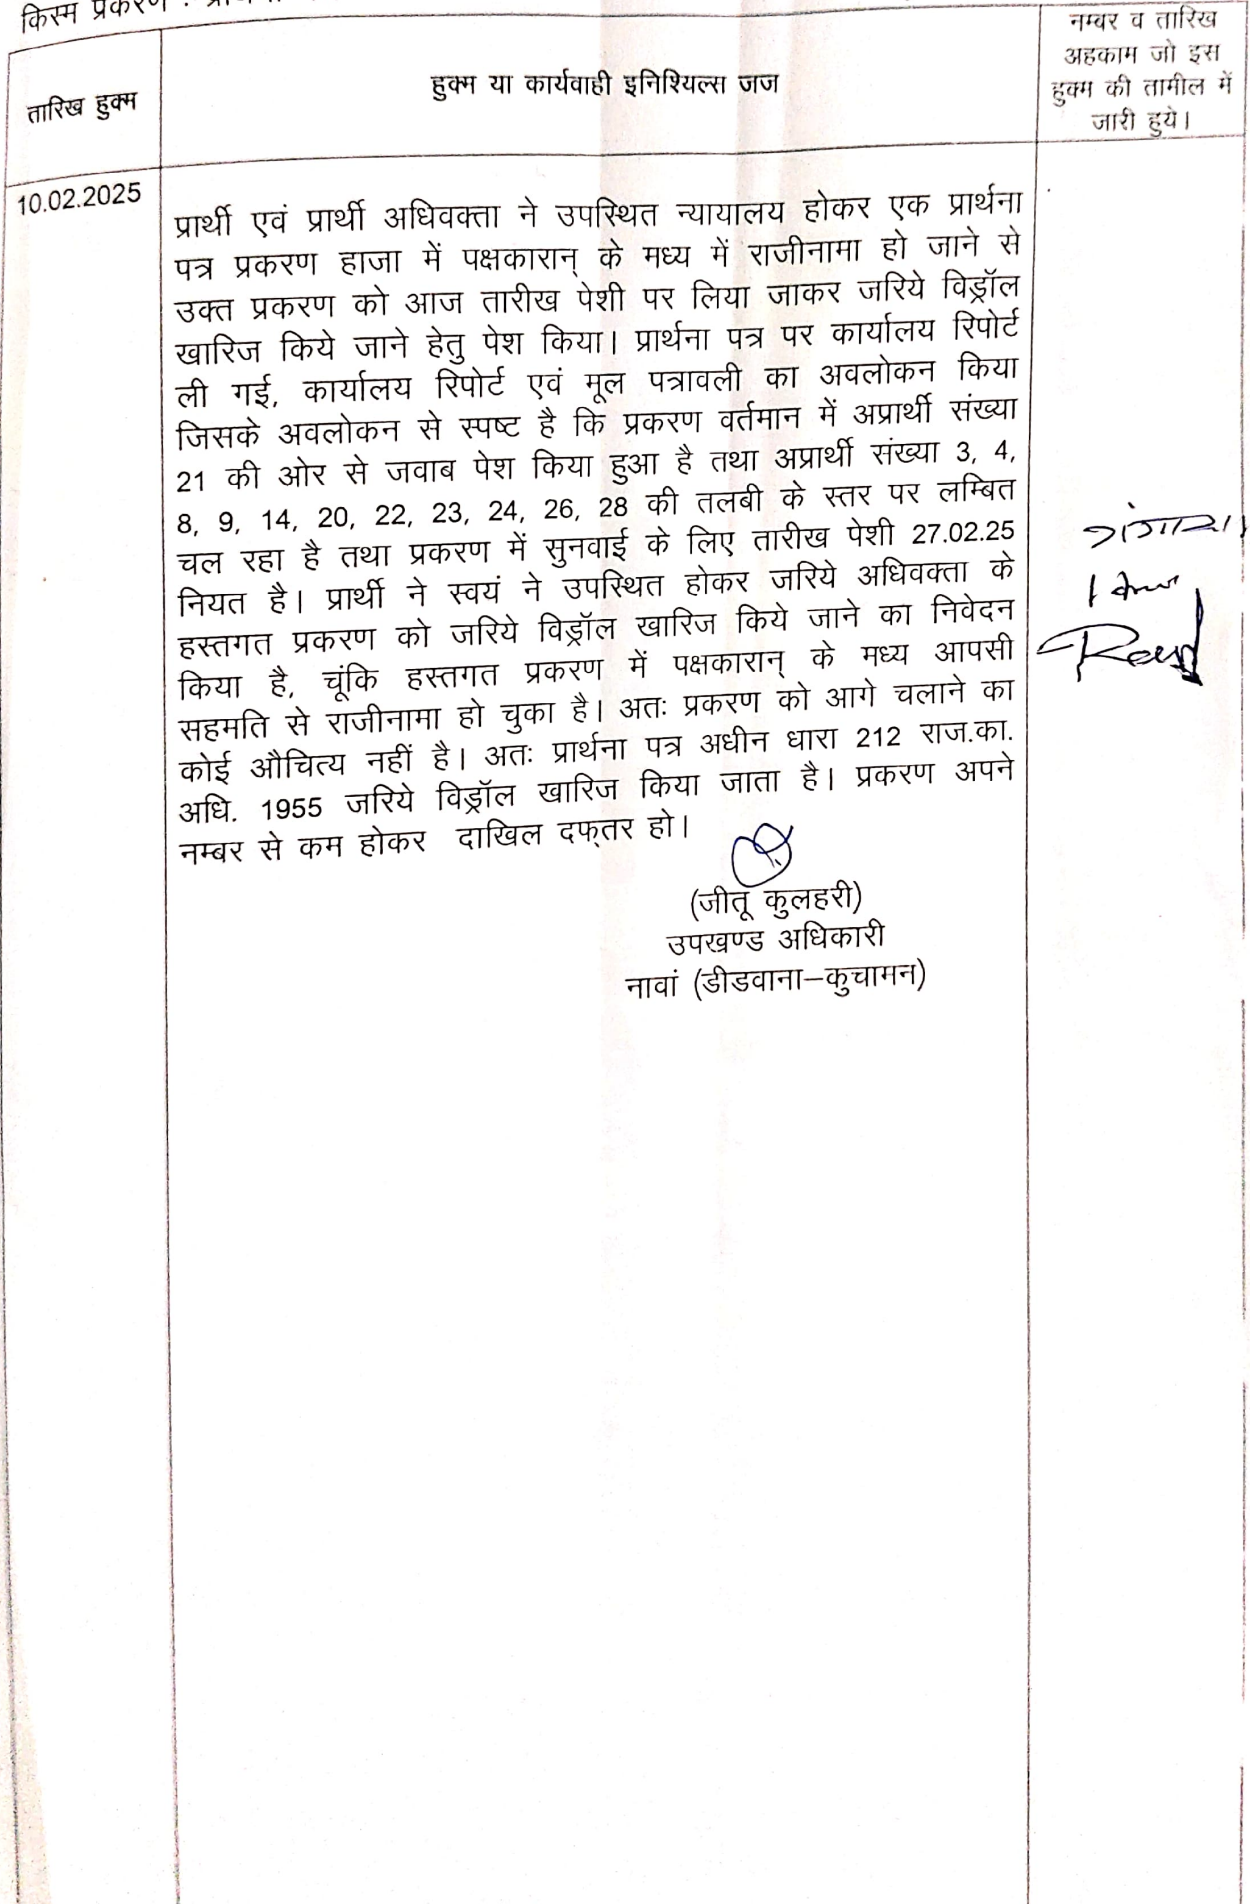 किस्म प्रकरण :
तारिख हुक्म
हुक्म या कार्यवाही इनिश्यिल्स जज
नम्बर व तारिख
अहकाम जो इस
हुक्म की तामील में
जारी हुये।
10.02.2025
प्रार्थी एवं प्रार्थी अधिवक्ता ने उपस्थित न्यायालय होकर एक प्रार्थना
पत्र प्रकरण हाजा में पक्षकारान् के मध्य में राजीनामा हो जाने से
उक्त प्रकरण को आज तारीख पेशी पर लिया जाकर जरिये विड्रॉल
खारिज किये जाने हेतु पेश किया। प्रार्थना पत्र पर कार्यालय रिपोर्ट
ली गई, कार्यालय रिपोर्ट एवं मूल पत्रावली का अवलोकन किया
जिसके अवलोकन से स्पष्ट है कि प्रकरण वर्तमान में अप्रार्थी संख्या
21 की ओर से जवाब पेश किया हुआ है तथा अप्रार्थी संख्या 3, 4,
8, 9, 14, 20, 22, 23, 24, 26, 28 की तलबी के स्तर पर लम्बित
चल रहा है तथा प्रकरण में सुनवाई के लिए तारीख पेशी 27.02.25
नियत है। प्रार्थी ने स्वयं ने उपस्थित होकर जरिये अधिवक्ता के
हस्तगत प्रकरण को जरिये विड्रॉल खारिज किये जाने का निवेदन
किया है, चूंकि हस्तगत प्रकरण में पक्षकारान् के मध्य आपसी
सहमति से राजीनामा हो चुका है। अतः प्रकरण को आगे चलाने का
कोई औचित्य नहीं है। अतः प्रार्थना पत्र अधीन धारा 212 राज.का.
अधि. 1955 जरिये विड्रॉल खारिज किया जाता है। प्रकरण अपने
नम्बर से कम होकर दाखिल दफ्तर हो।
(जीतू कुलहरी)
उपखण्ड अधिकारी
नावां (डीडवाना–कुचामन)